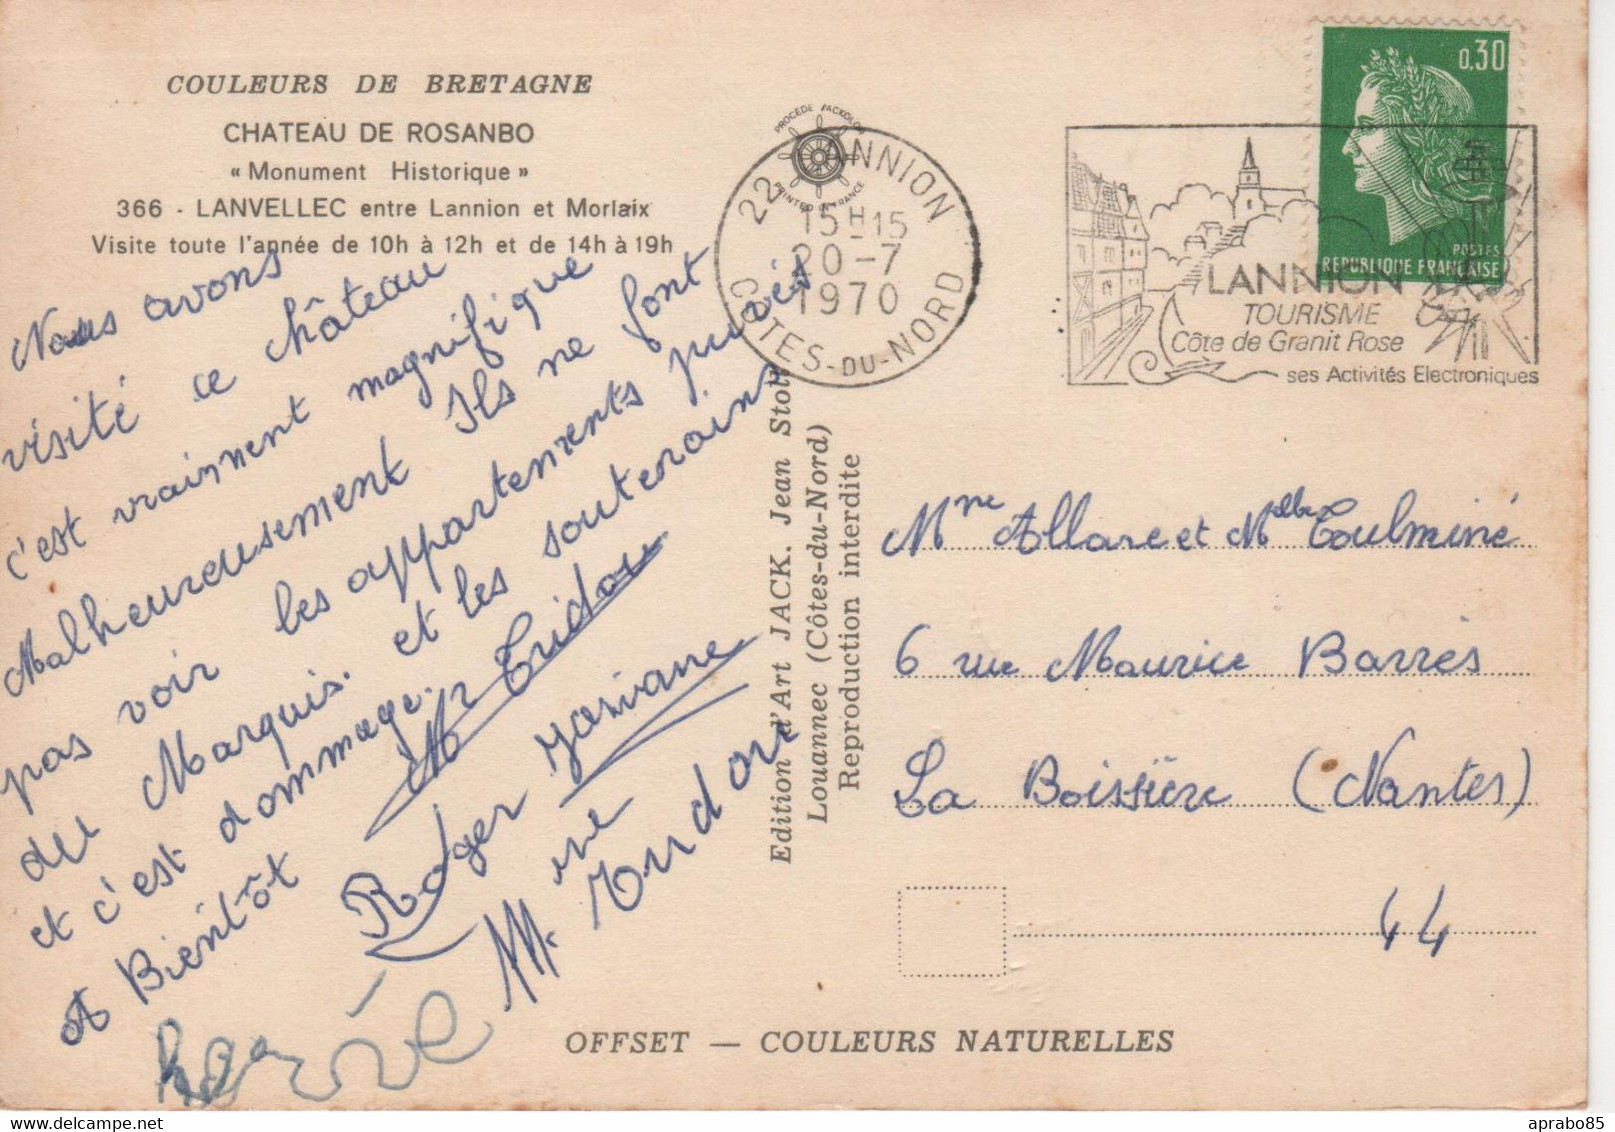 COULEURS DE BRETAGNE
CHATEAU DE ROSANBO
« Monument Historique »
366 - LANVELLEC entre Lannion et Morlaix
Visite toute l'année de 10h à 12h et de 14h à 19h
Nous avons
visité ce château
c'est vrainment magnifique
Malheureusement Ils ne font
pas voir les appartements privés
du Marquis. et les souterains
et c'est dommage.
A Bientôt Mr Tridon
Roger Josiane
Mme Tridon
Hervé
PROCEDE JACKOLOR
PRINTED IN FRANCE
22 LANNION
15H15
20-7
1970
COTES-DU-NORD
LANNION
TOURISME
Côte de Granit Rose
ses Activités Electroniques
0,30
POSTES
REPUBLIQUE FRANÇAISE
Edition d'Art JACK. Jean Stoll
Louannec (Côtes-du-Nord)
Reproduction interdite
Mme Allare et Melle Toulminé
6 rue Maurice Barrès
La Boissière (Nantes)
44
OFFSET — COULEURS NATURELLES
delcampe.net
aprabo85